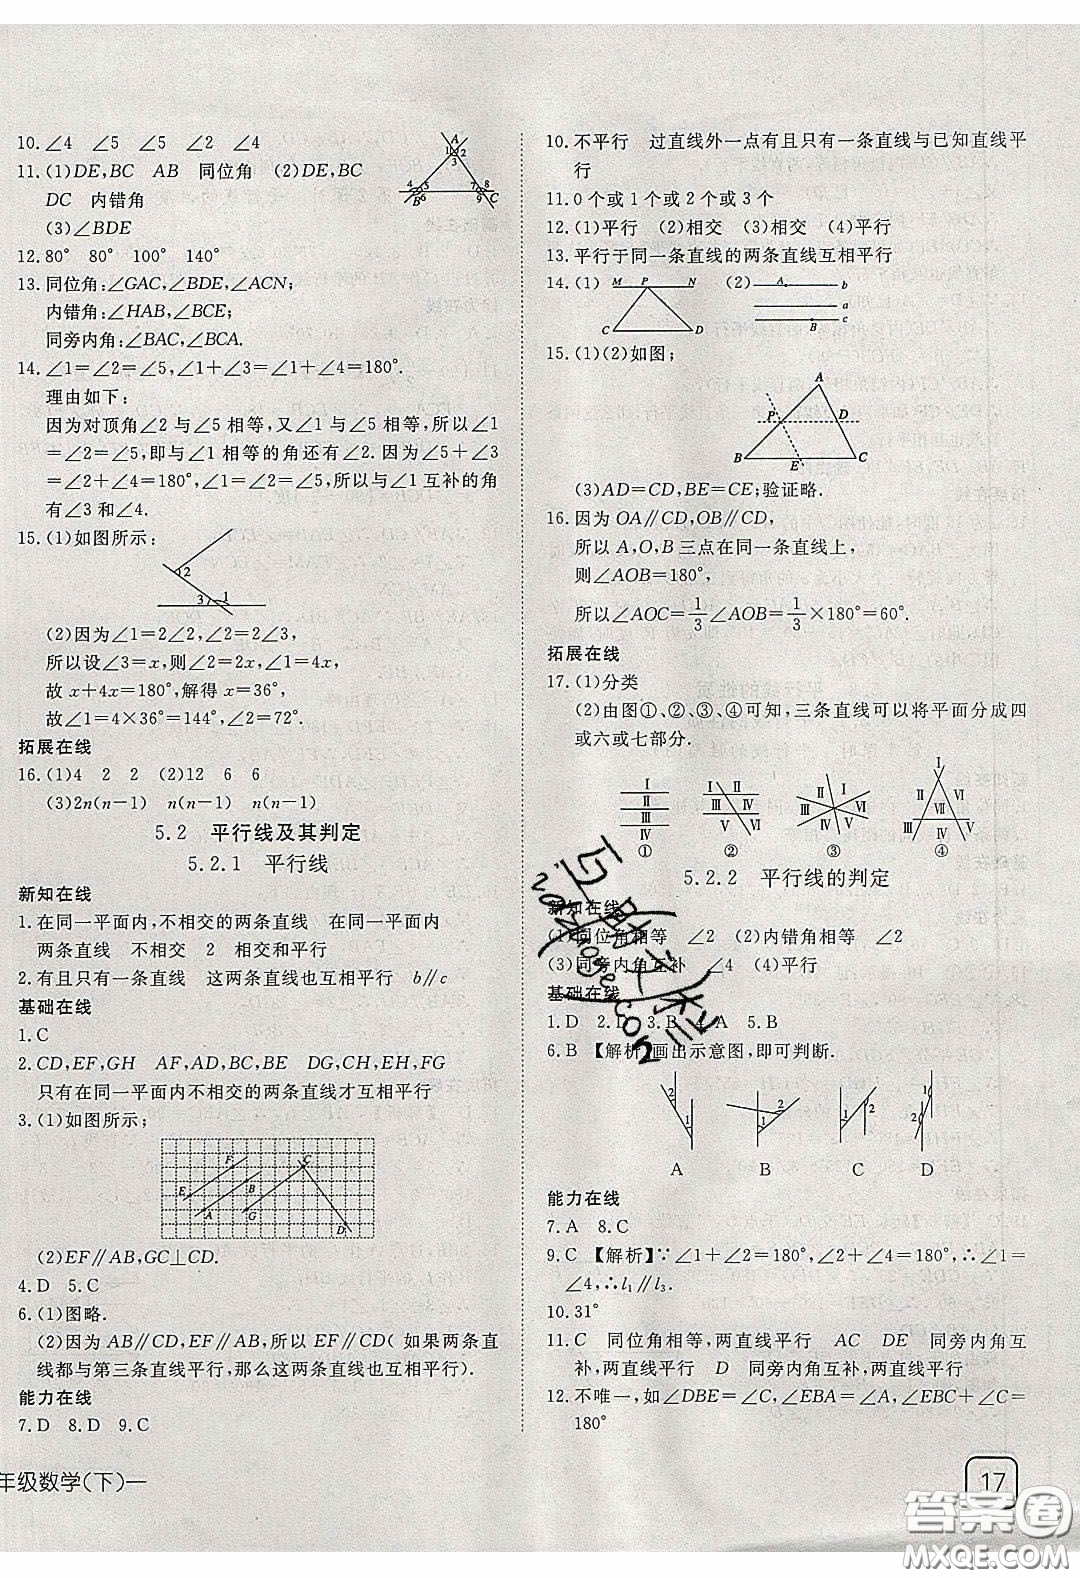 10. ∠4　∠5　∠5　∠2　∠4
11. (1)DE,BC　AB　同位角　(2)DE,BC
DC　内错角
(3)∠BDE
12. 80°　80°　100°　140°
13. 同位角:∠GAC,∠BDE,∠ACN;
内错角:∠HAB,∠BCE;
同旁内角:∠BAC,∠BCA.
14. ∠1=∠2=∠5,∠1+∠3=∠1+∠4=180°.
理由如下:
因为对顶角∠2与∠5相等,又∠1与∠5相等,所以∠1
=∠2=∠5,即与∠1相等的角还有∠2. 因为∠5+∠3
=∠2+∠4=180°,∠1=∠5=∠2,所以与∠1互补的角
有∠3和∠4.
15. (1)如图所示:
2
3 1
(2)因为∠1=2∠2,∠2=2∠3,
所以设∠3=x,则∠2=2x,∠1=4x,
故 x+4x=180°,解得 x=36°,
故∠1=4×36°=144°,∠2=72°.
拓展在线
16. (1)4　2　2　(2)12　6　6
(3)2n(n-1)　n(n-1)　n(n-1)
5.2　平行线及其判定
5.2.1　平行线
新知在线
1. 在同一平面内,不相交的两条直线　在同一平面内
两条直线　不相交　2　相交和平行
2. 有且只有一条直线　这两条直线也互相平行　b∥c
基础在线
1. C
2. CD,EF,GH　AF,AD,BC,BE　DG,CH,EH,FG
只有在同一平面内不相交的两条直线才互相平行
3. (1)如图所示;
F C
E B
A G D
(2)EF∥AB,GC⊥CD.
4. D　5. C
6. (1)图略.
(2)因为AB∥CD,EF∥AB,所以EF∥CD(如果两条直
线都与第三条直线平行,那么这两条直线也互相平行).
能力在线
7. D　8. D　9. C
年级数学(下)一
10. 不平行　过直线外一点有且只有一条直线与已知直线平
行
11. 0个或1个或2个或3个
12. (1)平行　(2)相交　(3)相交　(4)平行
13. 平行于同一条直线的两条直线互相平行
14. (1) M P N　(2) A b
a
C D　B c
15. (1)(2)如图;
A
P D
B E C
(3)AD=CD,BE=CE;验证略.
16. 因为OA∥CD,OB∥CD,
所以A,O,B三点在同一条直线上,
则∠AOB=180°,
所以∠AOC=1/3∠AOB=1/3×180°=60°.
拓展在线
17. (1)分类
(2)由图①、②、③、④可知,三条直线可以将平面分成四
或六或七部分.
①　②　③　④
5.2.2　平行线的判定
新知在线
(1)同位角相等　∠2　(2)内错角相等　∠2
(3)同旁内角互补　∠4　(4)平行
基础在线
1. D　2. D　3. B　4. A　5. B
6. B　【解析】画出示意图,即可判断.
A　B　C　D
能力在线
7. A　8. C
9. C　【解析】∵∠1+∠2=180°,∠2+∠4=180°,∴∠1=
∠4,∴l₁∥l₃.
10. 31°
11. C　同位角相等,两直线平行　AC　DE　同旁内角互
补,两直线平行　D　同旁内角互补,两直线平行
12. 不唯一,如∠DBE=∠C,∠EBA=∠A,∠EBC+∠C=
180°
17
答案圈
MXQE.COM